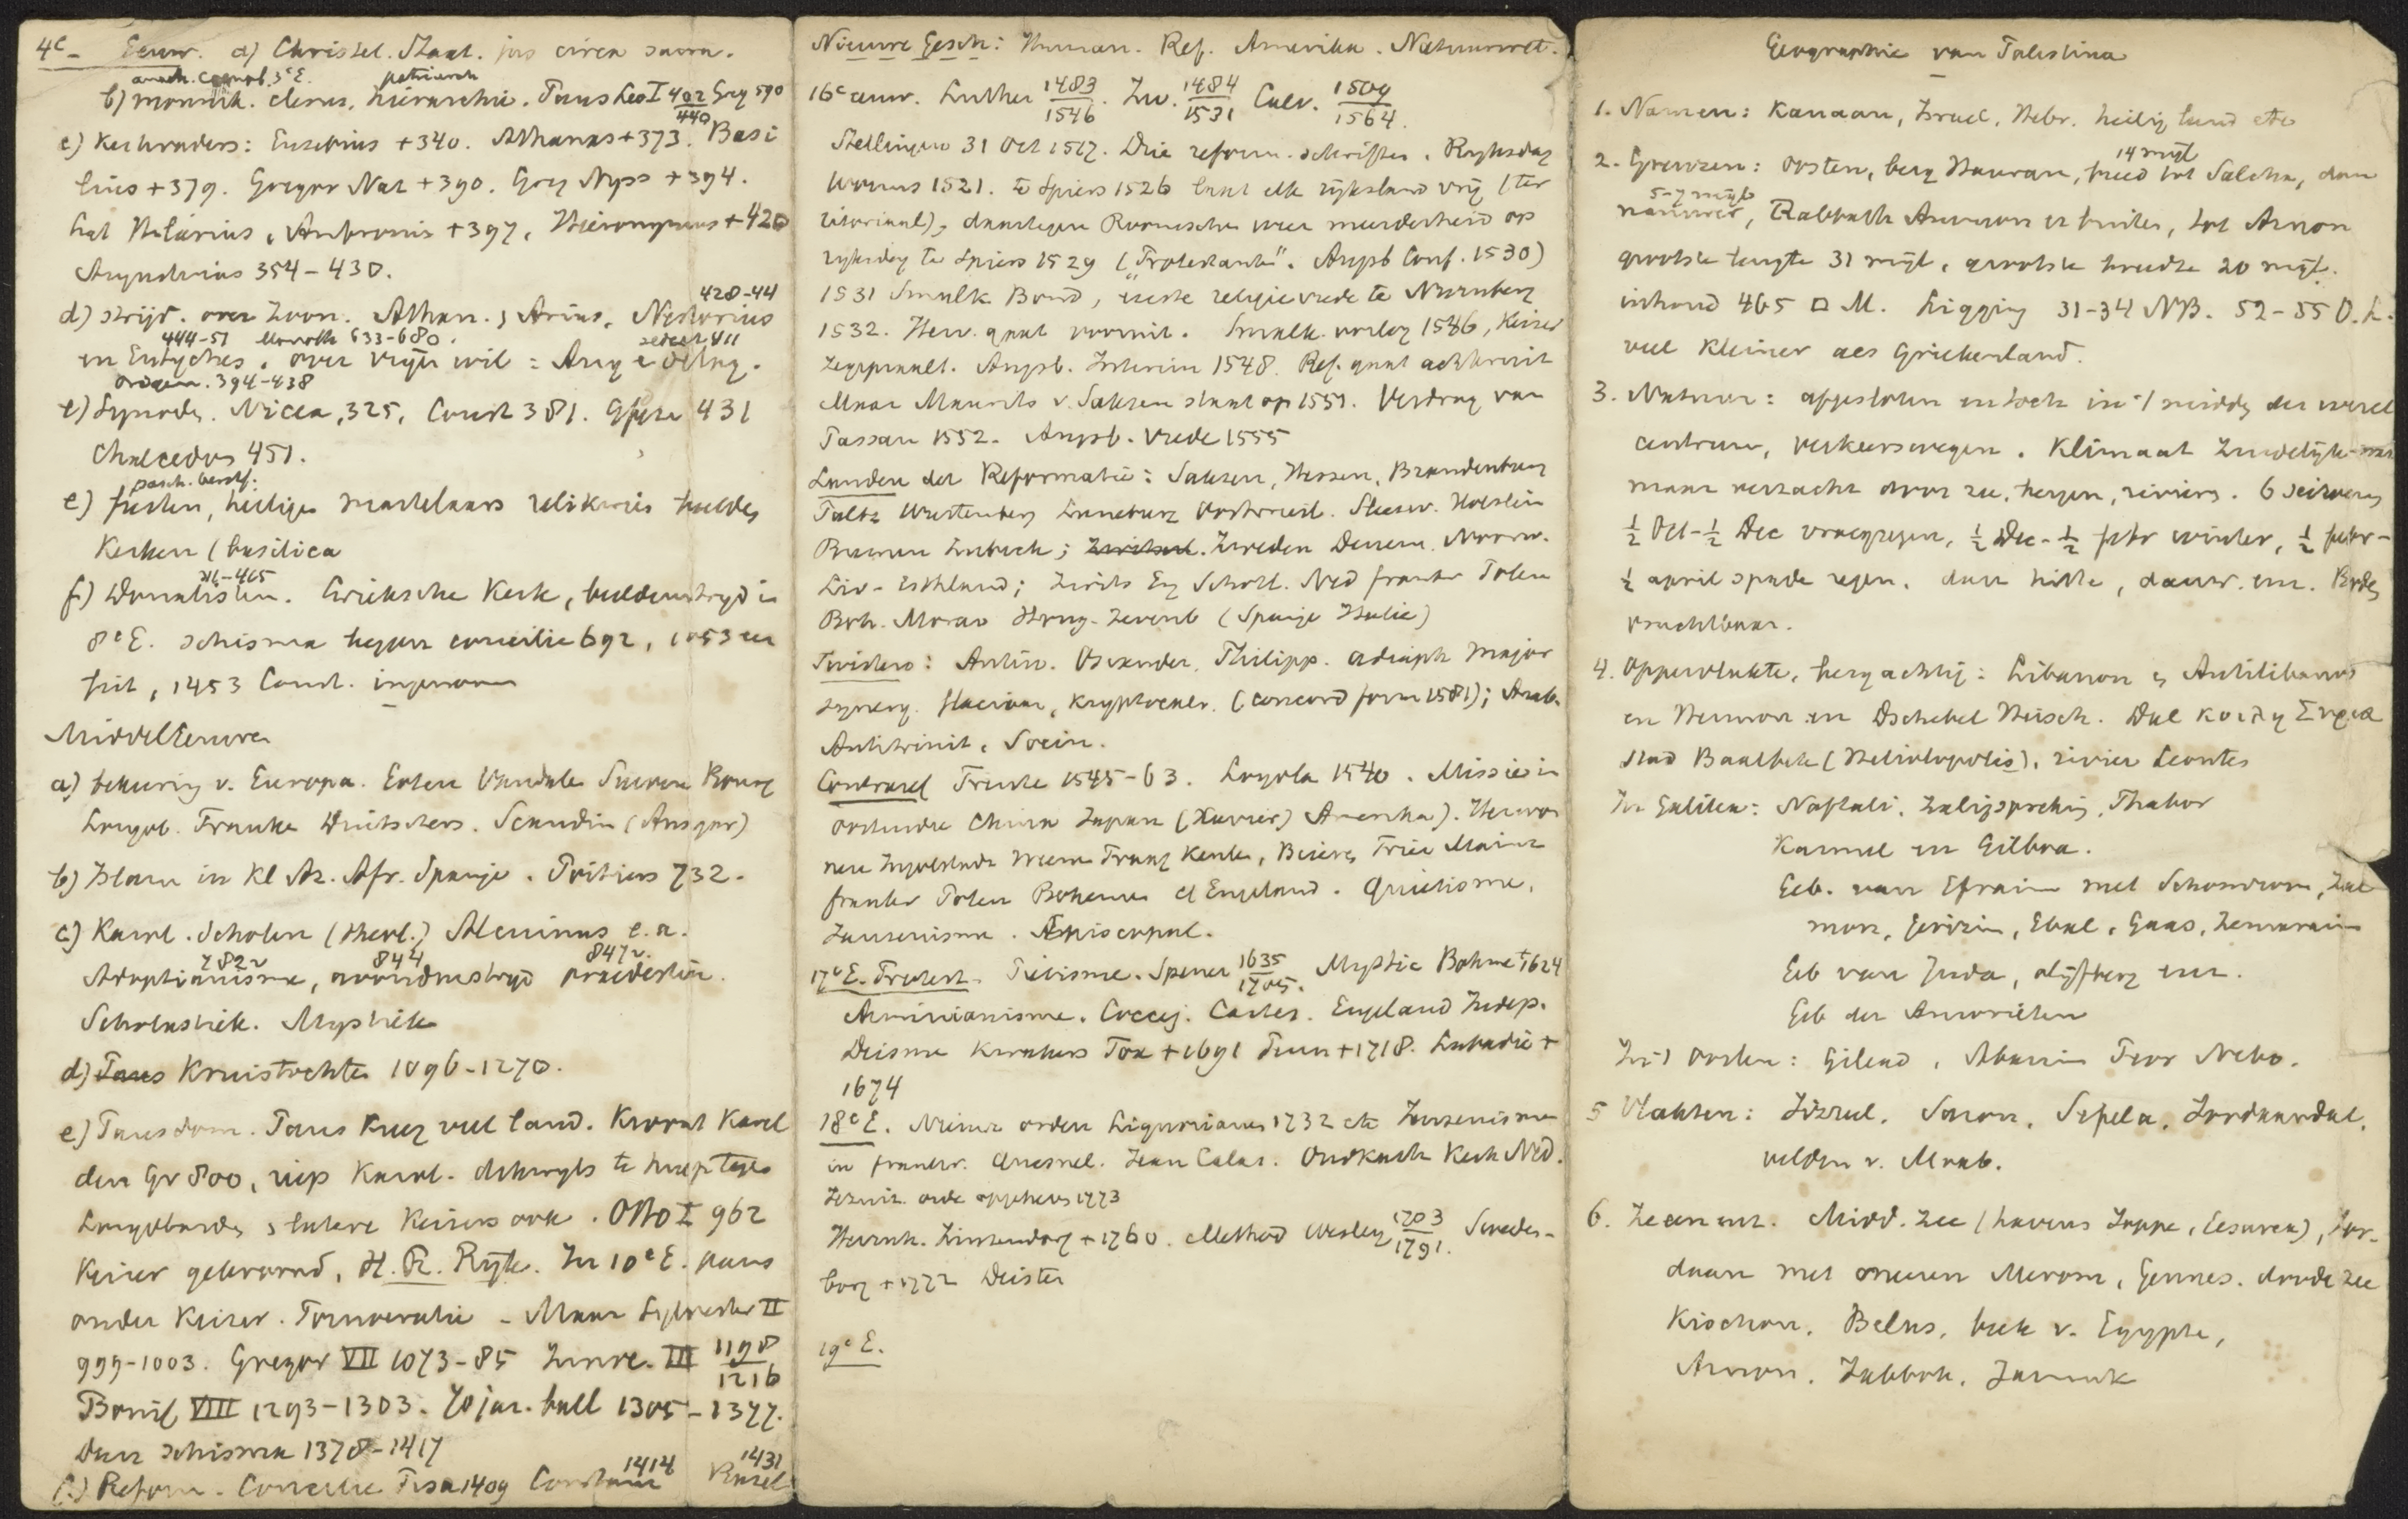 4e - Eeuw. a) Christel. Staat. jus circa sacra.
anach. coenob. 3e E. patriarch
b) monnik. clerus, hiërarchie. Paus Leo I 402/440 Greg 590
c) Kerkvaders: Eusebius +340. Athanas +373. Basi
lius +379. Gregor Naz +390. Greg Nyss +394.
Lat Hilarius, Ambrosius +397, Hieronymus +420
Augustinus 354-430.
428-44
d) strijd. over Zoon. Athan. & Arius, Nestorius
444-51 Monoth 633-680.
en Eutyches, over vrijen wil: Aug & Pelag.
Origen. 394-438
e) Synodes. Nicea, 325, Const 381. Efeze 431
Chalcedon 451.
pasch. berst:
e) feesten, heiligen martelaars relikwiën beelden
Kerken (basilica
311-415
f) Donatisten. Grieksche Kerk, beeldenstrijd in
8e E. schisma tegen concilie 692, 1053 een
feit, 1453 Const. ingenomen
Middel Eeuwen
a) bekeering v. Europa. Goten Vandalen Sueven Bourg
Longob. Franken Duitschers. Scandin (Ansgar)
b) Islam in Kl Az. Afr. Spanje. Poitiers 732.
c) Karol. Scholen (Theol.) Alcuinus e.a.
782 844 847
Adoptianisme, avondmstrijd praedestin.
Scholastiek. Mystiek
d) Paus Kruistochten 1096-1270.
e) Pausdom. Paus kreeg veel land. Kroont Karel
den Gr 800, riep Karol. dikwijls te hulp tegen
Longobarden, latere Keizers ook. Otto I 962
Keizer gekroond, H. R. Rijk. In 10e E. paus
onder Keizer. Pornocratie - Maar Sylvester II
999-1003. Gregor VII 1073-85 Innoc. III 1198/1216
Bonif VIII 1293-1303. 70 jar. ball 1305-1377.
Dan schisma 1378-1417
1414 1431
f.) Reform. Concilie Pisa 1409 Constanz Bazel
Nieuwe Gesch: Human. Ref. Amerika. Natuurwet.
16e eeuw. Luther 1483/1546. Zw. 1484/1531 Calv. 1509/1564.
Stellingen 31 Oct 1517. Drie reform. schriften. Rijksdag
Worms 1521. te Spiers 1526 laat elk rijksland vrij (ter
ritoriaal), daartegen Roomsche weer meerderheid op
rijksdag te Spiers 1529 ("Protestant". Augsb Conf. 1530)
1531 Smalk. Bond, eerste religievrede te Nurnberg
1532. Herv. gaat vooruit. Smalk. oorlog 1546, Keizer
zegepraalt. Augsb. Interim 1548. Ref. gaat achteruit
Maar Maurits v. Saksen staat op 1551. Verdrag van
Passau 1552. Augsb. vrede 1555
Landen der Reformatie: Saksen, Hessen, Brandenburg
Paltz Wurtemberg Luneburg Oostvriesl. Sleesw. Holstein
Bremen Lubeck; Zwitserl. Zweden Denem. Noorw.
Lijf- Esthland; Zwits Eng Schotl. Ned frankr Polen
Boh. Morav Hong. Zevenb (Spanje Italie)
Twisten: Antin. Osiander. Philipp. adiaph Major
synerg. flacian, Kryptocalv. (concord form 1581); Anab.
Antitrinit, Socin.
Contraref Trente 1545-63. Loyola 1540. Missie in
Oostindie China Japan (Xavier) Amerika). Herwon
nen Ingolstadt Weenen Praag Keulen, Beieren Trier Mainz
frankr Polen Bohemen & Engeland. Quietisme,
Jansenisme. Episcopaal.
17e E. Protest. Piëtisme. Spener 1635/1705. Mystic Bohme +1624
Arminianisme. Coccej. Cartes. Engeland Indep.
Deisme Kwakers Fox +1691 Penn +1718. Labadie +
1674
18e E. Nieuwe orden Ligurianen 1732 etc Jansenisme
in frankr. Quesnel. Jean Calas. Oudkath Kerk Ned.
Jezuit. orde opgeheven 1773
Hernh. Zinzendorf +1760. Method Wesley 1703/1791. Sweden-
borg +1772 Deisten
19e E.
Geographie van Palestina
1. Namen: Kanaan, Israel, Hebr. heilig land etc
14 mijl
2. Grenzen: oosten, berg Hauran, breed tot Salcha, dan
5-7 mijl
nauwer, Rabbath Ammon er buiten, tot Arnon
grootste lengte 31 mijl, grootste breedte 20 mijl.
inhoud 465 □ M. Ligging 31-34 NB. 52-55 O.L.
veel kleiner als Griekenland.
3. Natuur: afgesloten en toch in 't midden der werel
centrum, verkeerswegen. Klimaat Zuidelijk-
maar verzacht door zee, bergen, riviers. 6 seizoenen
½ Oct-½ Dec vroegregen, ½ Dec-½ febr winter, ½ febr-
½ april spade regen, dan hitte, dauw. enz. Bodem
vruchtbaar.
4. Oppervlakte, bergachtig: Libanon & Antilibanos
en Hermon en Dschebel Heisch. Dal Κοιλη Συρια
stad Baalbek (Heliolopolis), rivier Leontes
In Galilea: Naftali, Zaligspreking, Thabor
Karmel en Gilboa.
Geb. van Efraim met Schomron, Zal
mon, Gerizim, Ebal, Gaas, Zemaraim
Geb van Juda, olijfberg enz.
Geb der Amorieten
In 't Oosten: Gilead, Abarim Peor Nebo.
5 Vlakten: Jizreel, Saron, Sefela, Jordaandal,
velden v. Moab.
6. Zeeen enz. Midd. zee (havens Joppe, Cesarea), Jor-
daan met meeren Merom, Gennes. doode zee
Kischon, Belus, beek v. Egypte,
Arnon, Jabbok, Jarmuk